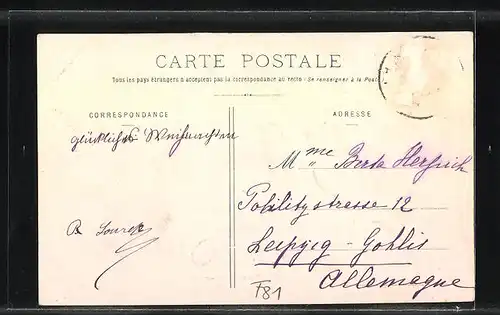 CARTE POSTALE
Tous les pays étrangers n'acceptent pas la correspondance au recto (Se renseigner à la Poste
CORRESPONDANCE
ADRESSE
glückliche Weihnachten
Mme Berta
12
R
Leipzig-Gohlis
Allemagne
F81